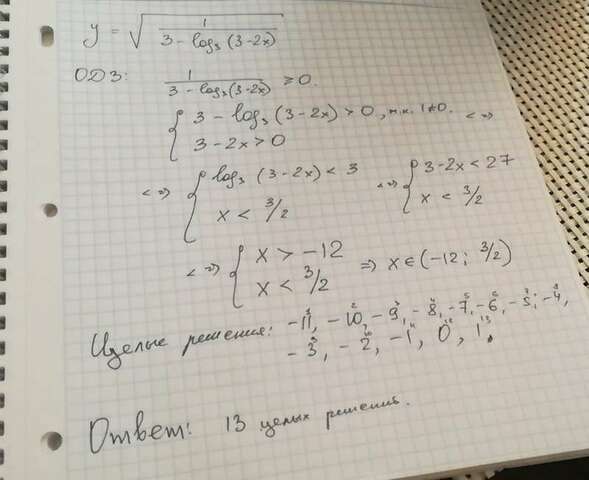 y = √(1 / (3 - log₃(3-2x)))
ОДЗ: 1 / (3 - log₃(3-2x)) ≥ 0.
{ 3 - log₃(3-2x) > 0, т.к. 1≠0. <=>
3 - 2x > 0
<=> { log₃(3-2x) < 3 <=> { 3-2x < 27
x < 3/2 x < 3/2
<=> { x > -12 => x ∈ (-12; 3/2)
x < 3/2
Целые решения: -11, -10, -9, -8, -7, -6, -5, -4,
-3, -2, -1, 0, 1.
Ответ: 13 целых решений.